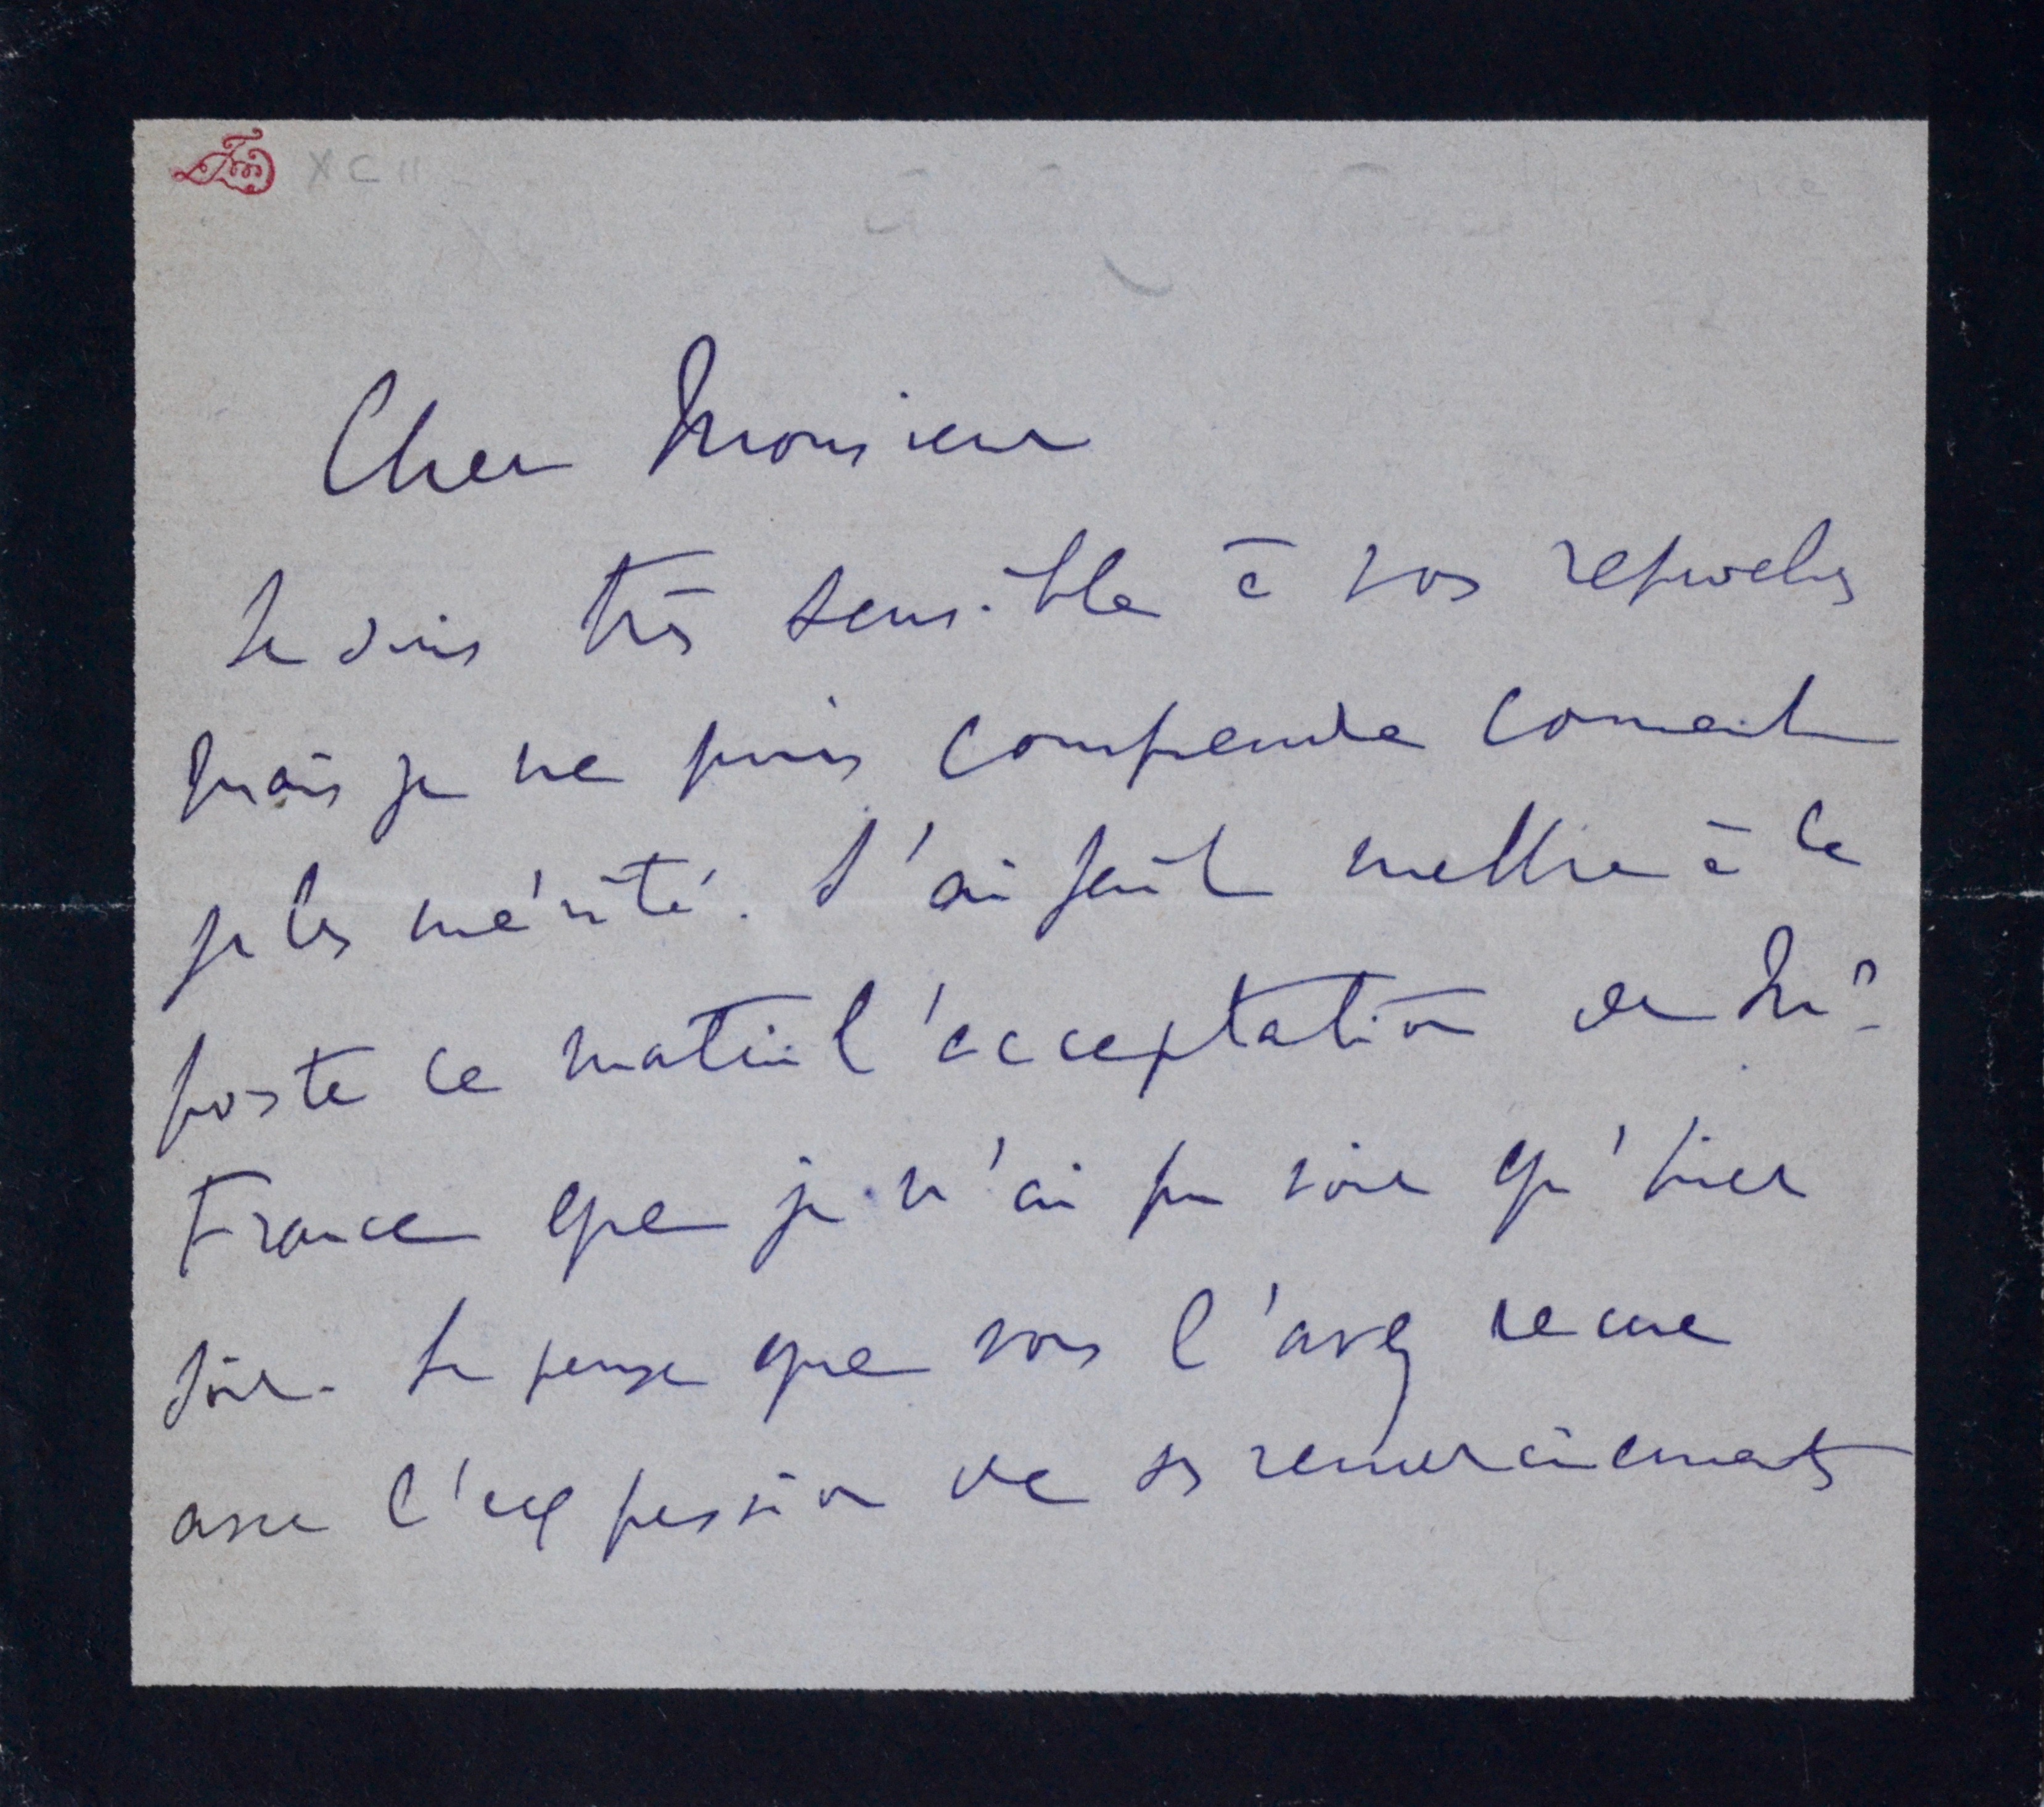 XCII
Cher Monsieur
Je suis très sensible à vos reproches
mais je ne puis comprendre comment
je les mérité. J'ai fait mettre à la
poste ce matin l'acceptation de Mr
France que je n'ai pu voir qu'hier
soir. Je pense que vous l'avez recue
avec l'expression de ses remerciements